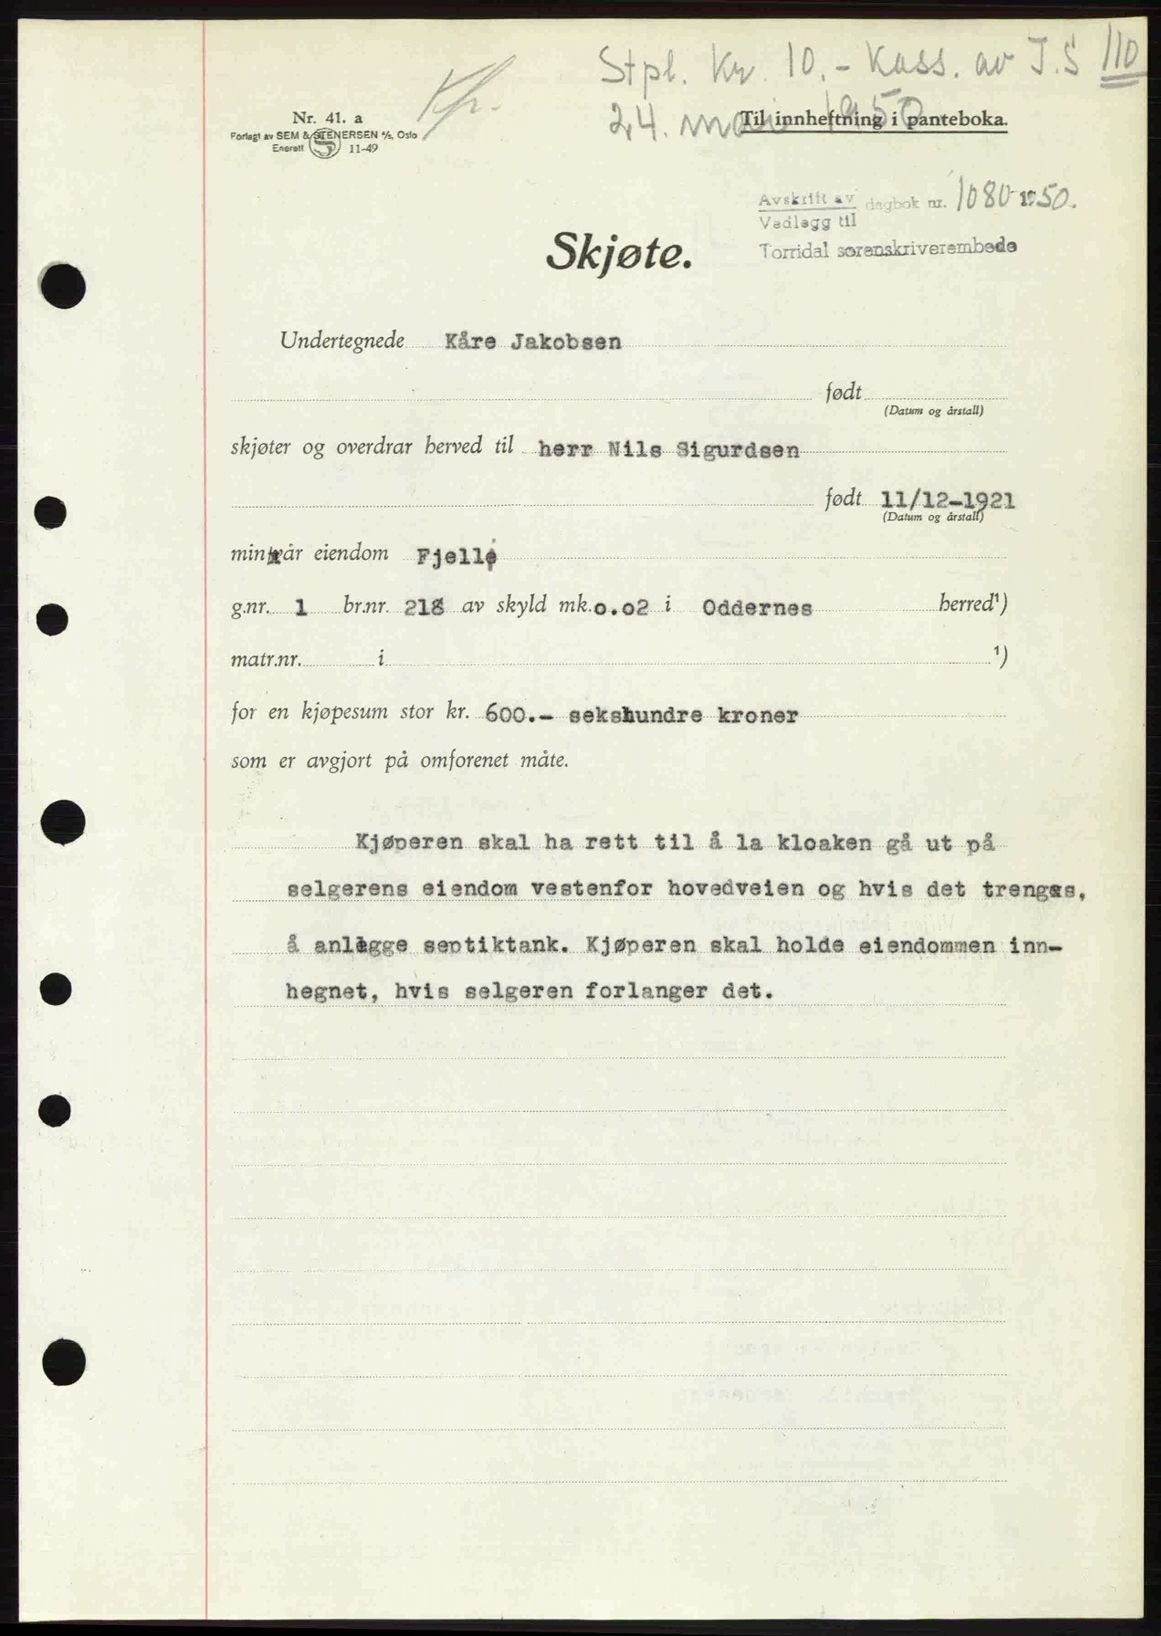 Stpl. Kr. 10.- Kass. av J.S 110
24. mai 1950
Nr. 41. a
Forlagt av SEM & STENERSEN A/S, Oslo
Enerett S 11-49
Til innheftning i panteboka.
Avskrift av dagbok nr. 1080 1950.
Vedlegg til
Torridal sorenskriverembede
Skjøte.
Undertegnede Kåre Jakobsen
født
(Datum og årstall)
skjøter og overdrar herved til herr Nils Sigurdsen
født 11/12-1921
(Datum og årstall)
min/vår eiendom Fjellø
g.nr. 1 br.nr. 218 av skyld mk. 0.02 i Oddernes herred¹)
matr.nr. i ¹)
for en kjøpesum stor kr. 600.- sekshundre kroner
som er avgjort på omforenet måte.
Kjøperen skal ha rett til å la kloaken gå ut på
selgerens eiendom vestenfor hovedveien og hvis det trenges,
å anlegge septiktank. Kjøperen skal holde eiendommen inn-
hegnet, hvis selgeren forlanger det.